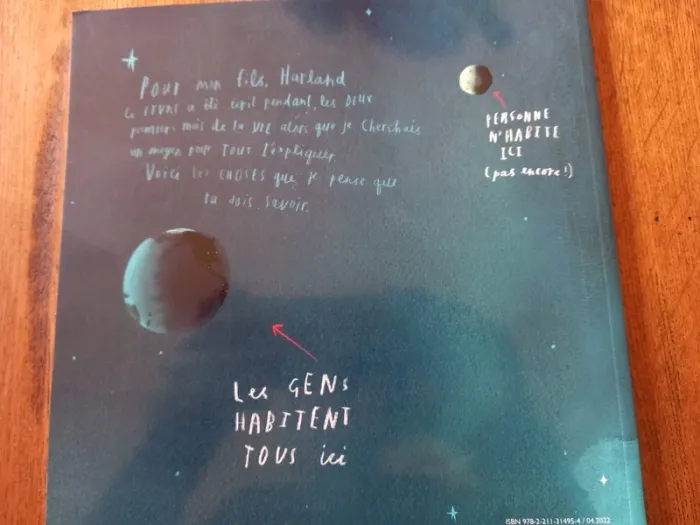 Pour mon fils, Harland
Ce LIVRE a été écrit pendant les DEUX
premiers mois de ta VIE alors que je cherchais
un moyen pour TOUT t'expliquer.
Voici les CHOSES que je pense que
tu dois savoir.
PERSONNE
N'HABITE
ICI
(pas encore!)
Les GENS
HABITENT
TOUS ici
ISBN 978-2-211-31495-4 / 04 2022